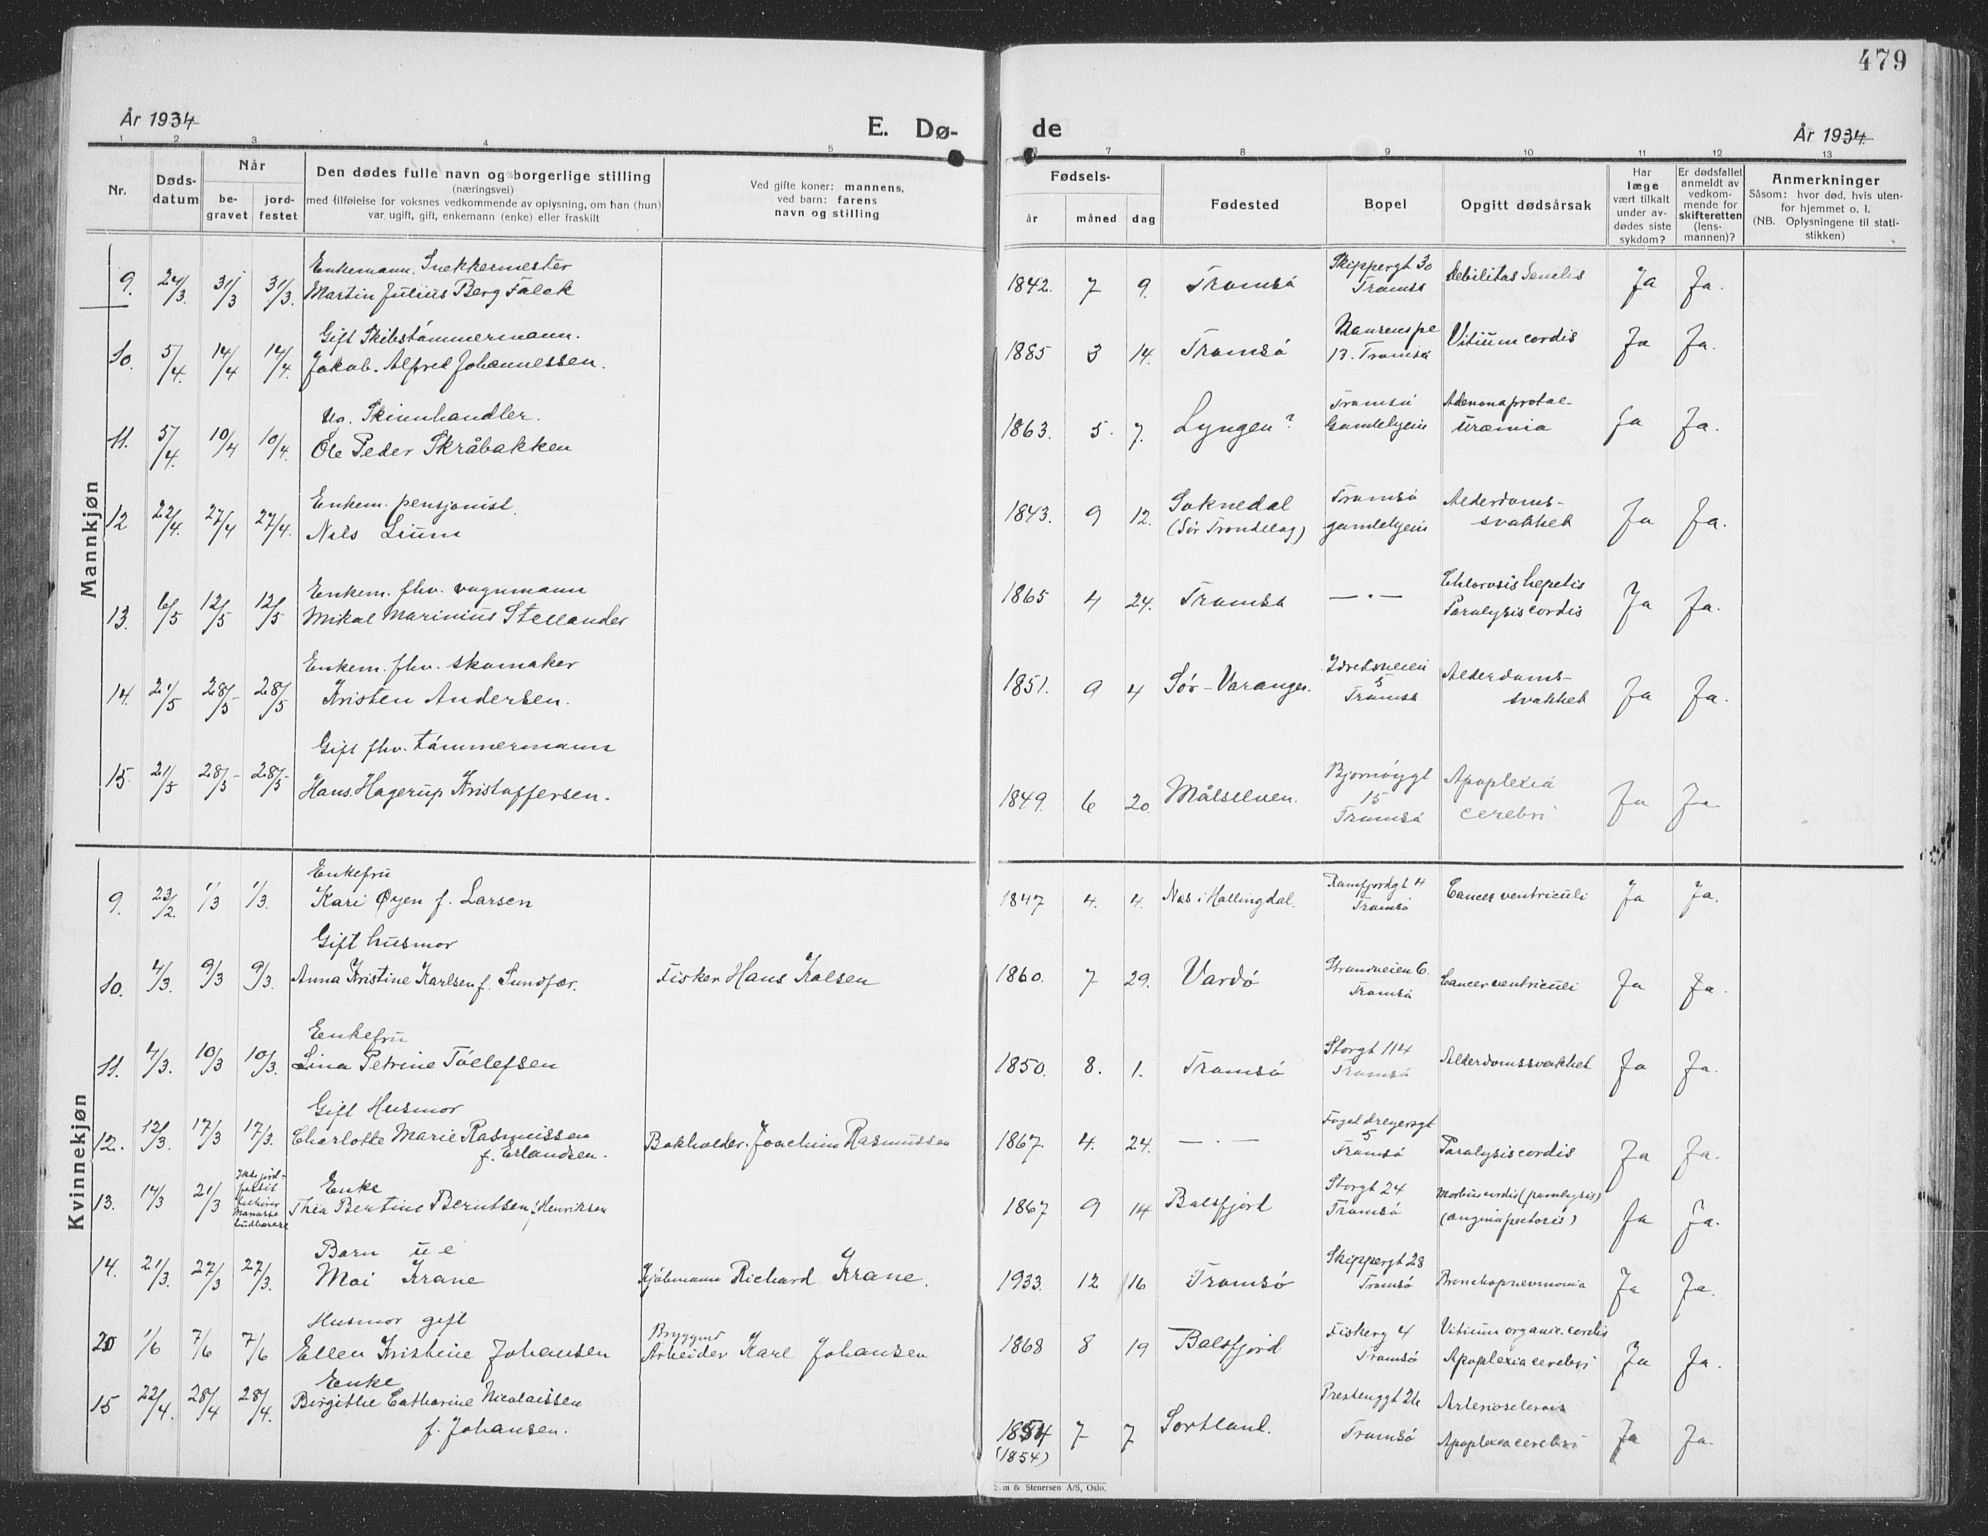 479
År 1934
E. Dø-
de
År 1934
1 2 3 4 5 6 7 8 9 10 11 12 13
Nr.
Døds-
datum
Når
be-
gravet
jord-
festet
Den dødes fulle navn og borgerlige stilling
(næringsvei)
med tilføielse for voksnes vedkommende av oplysning, om han (hun)
var ugift, gift, enkemann (enke) eller fraskilt
Ved gifte koner: mannens,
ved barn: farens
navn og stilling
Fødsels-
år måned dag
Fødested
Bopel
Opgitt dødsårsak
Har
læge
vært tilkalt
under av-
dødes siste
sykdom?
Er dødsfallet
anmeldt av
vedkom-
mende for
skifteretten
(lens-
mannen)?
Anmerkninger
Såsom: hvor død, hvis uten-
for hjemmet o. l.
(NB. Oplysningene til stati-
stikken)
Mannkjøn
Enkemann. Snekkermester
9. 24/3. 31/3 31/3. Martin Julius Berg Falck
1842. 7 9. Tromsö Skippergt 30 Tromsö Debilitas Senilis Ja Ja.
Gift Skibstömmermann.
10. 5/4. 14/4 14/4. Jakob. Alfred Johannessen.
1885 3 14. Tromsö 13. Tromsö Vitium cordis Ja Ja.
Ug. Skinnhandler.
11. 5/4. 10/4 10/4. Ole Peder Skråbakken
1863. 5. 7. Lyngen? Tromsö Gamlehjem uræmia Ja Ja.
Enkem. pensjonist.
12 22/4. 27/4 27/4. Nils Lium
1843. 9 12. Soknedal (Sør Trondelag) Tromsö gamlehjem Alderdoms-svakhet Ja Ja.
Enkem. fhv. vognmann
13. 6/5 12/5 12/5 Mikal Marinius Stellander
1865 4 24. Tromsö —·— hepetis Paralysis cordis Ja Ja.
Enkem. fhv. skomaker
14. 21/5 28/5 28/5 Kristen Andersen.
1851. 9 4 Sör-Varanger. Idretsveien 5 Tromsö Alderdoms-svakhet Ja Ja.
Gift fhv. tömmermann
15. 21/5 28/5- 28/5- Hans. Hagerup Kristoffersen.
1849. 6 20. Målselven. Bjornöygt 15 Tromsö Apoplexia cerebri Ja Ja
Kvinnekjøn
Enkefru
9. 23/2. 1/3 1/3. Kari Øyen f. Larsen
1847 4. 4. Nes i Hallingdal. Ramfjordgt 4 Tromsö Cancer ventriculi Ja Ja.
Gift husmor
10. 4/3. 9/3 9/3. Anna Kristine Karlsen f. Sundfær. Fisker Hans Kalsen
1860. 7 29. Vardö Strandveien 6. Tromsö Cancer ventriculi Ja Ja.
Enkefru
11. 4/3. 10/3 10/3. Lina Petrine Töllefsen
1850. 8. 1. Tromsö Storgt 114 Tromsö Alderdomssvakhet Ja Ja.
Gift Husmor
12. 12/3. 17/3 17/3. Charlotte Marie Rasmussen
f. Erlandsen. Bokholder. Joachim Rasmussen
1867. 4. 24. —·— Foged dreyersgt 5 Tromsö Paralysis cordis Ja Ja.
Enke
13. 14/3 21/3 Thea Bertine Berntsen f. Henriksen
1867 9 14 Balsfjord Storgt 24 Tromsö Morbus cordis (paralysis) (angina pectoris) Ja Ja.
Barn u e
14. 21/3. 27/3 27/3. Moi Krane Kjöbmann Richard Krane.
1933. 12 16 Tromsö Skippergt 28 Tromsö Bronchopneumonia Ja Ja.
Husmor gift
20 1/6 7/6 7/6 Ellen Kristine Johansen Arbeider Karl Johansen
1868 8 19 Balsfjord Fiskerg 4 Tromsö Vitium organic. cordis Apoplexia cerebri Ja Ja.
Enke
15 22/4. 28/4 28/4. Birgithe Catharine Nicolaissen
f. Johansen.
1854 (1854) 7 7 Sortland. Tromsö Apoplexia cerebri Ja Ja.
& Stenersen A/S, Oslo.